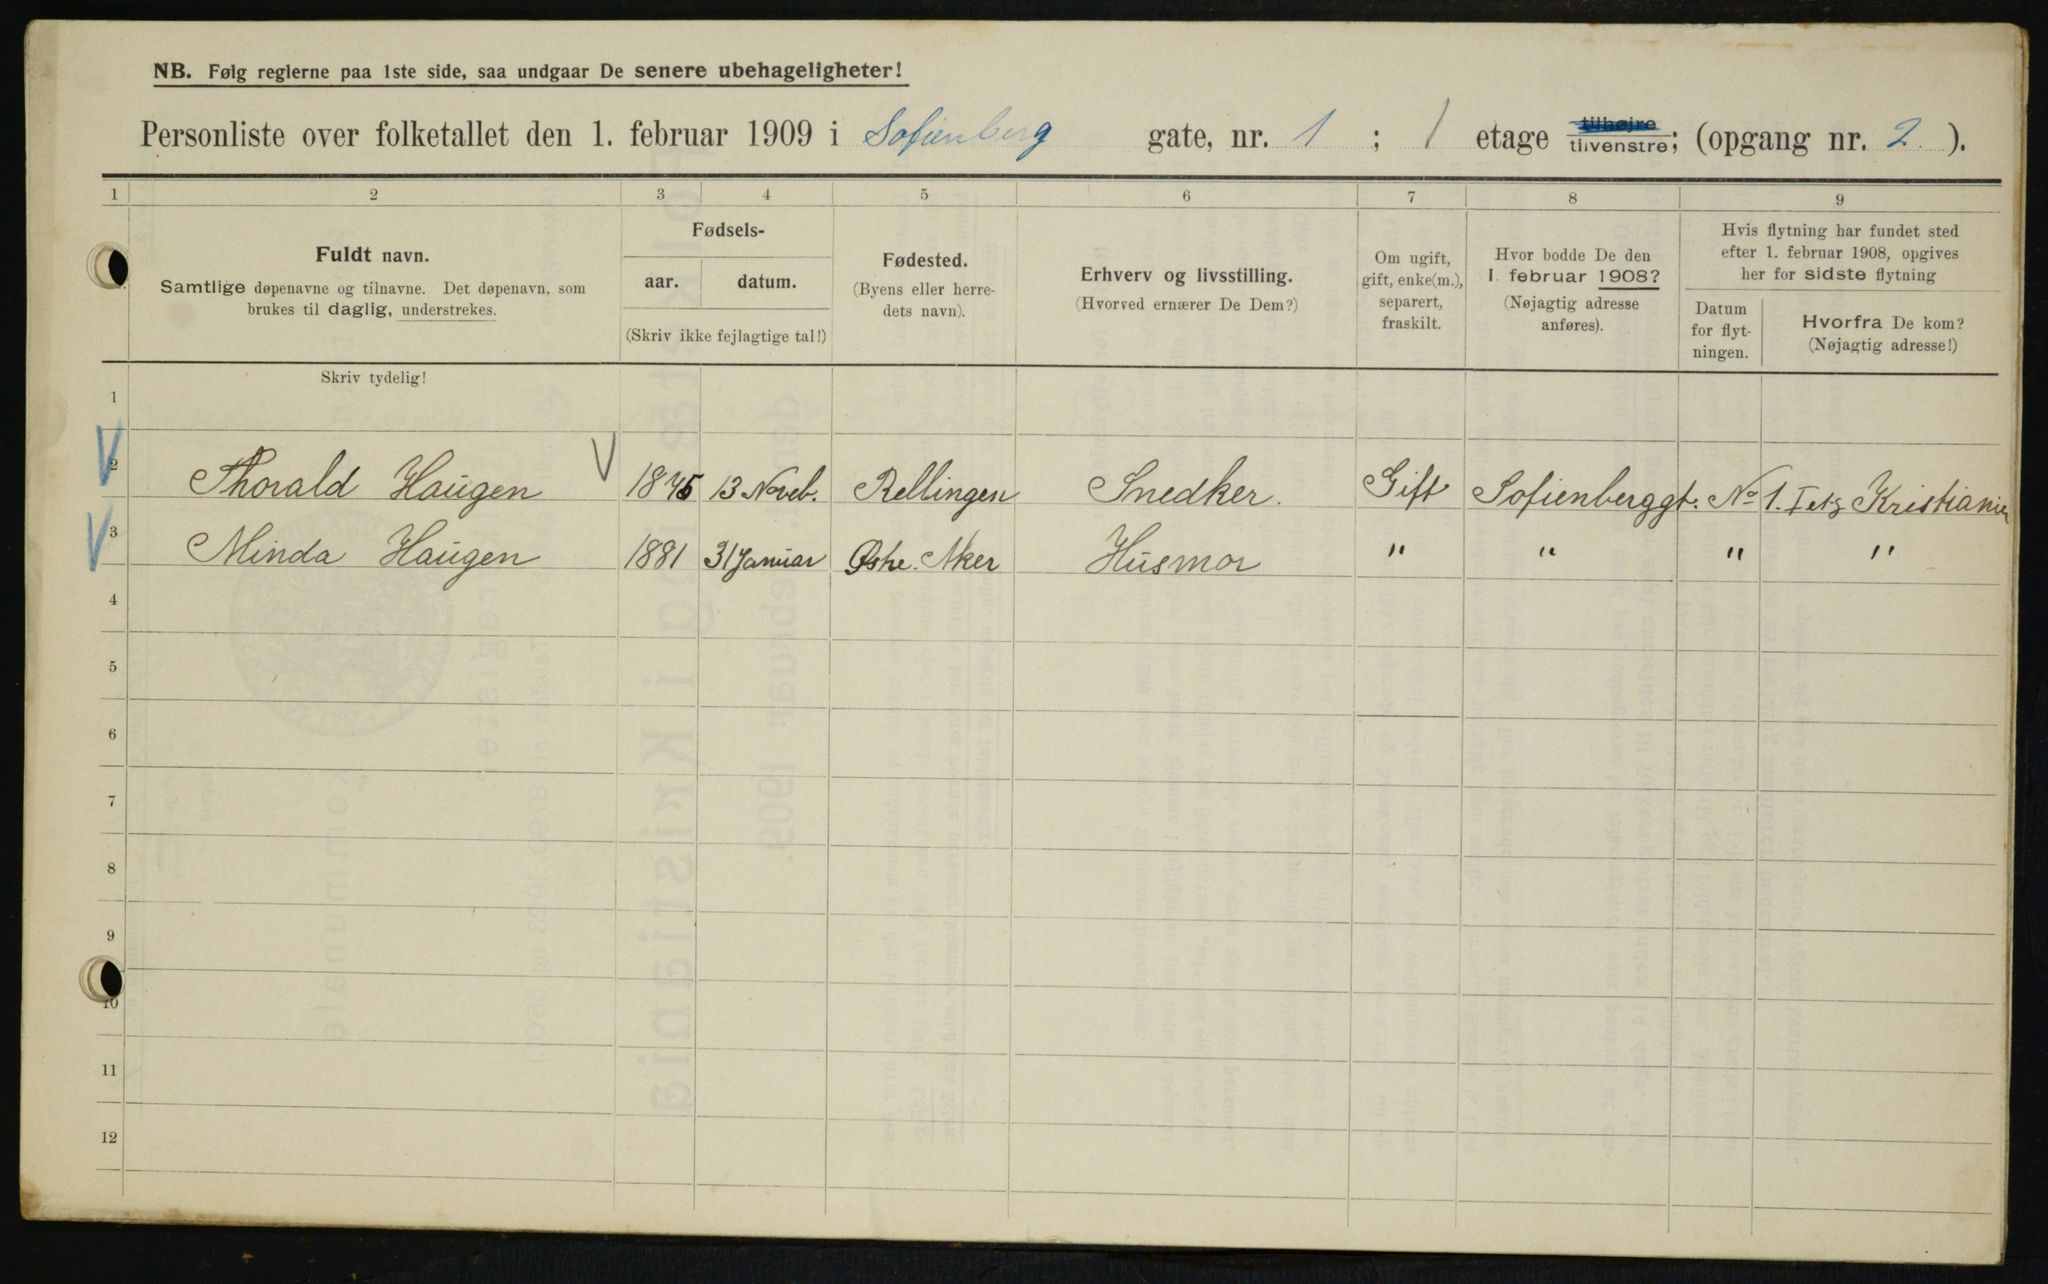 NB. Følg reglerne paa 1ste side, saa undgaar De senere ubehageligheter!
Personliste over folketallet den 1. februar 1909 i Sofienberg gate, nr. 1 ; 1 etage tilhøjre tilvenstre; (opgang nr. 2. ).
1 2 3 4 5 6 7 8 9
Fuldt navn.
Samtlige døpenavne og tilnavne. Det døpenavn, som
brukes til daglig, understrekes.
Fødsels-
aar. datum.
(Skriv ikke fejlagtige tal!)
Fødested.
(Byens eller herre-
dets navn).
Erhverv og livsstilling.
(Hvorved ernærer De Dem?)
Om ugift,
gift, enke(m.),
separert,
fraskilt.
Hvor bodde De den
1. februar 1908?
(Nøjagtig adresse
anføres).
Hvis flytning har fundet sted
efter 1. februar 1908, opgives
her for sidste flytning
Datum
for flyt-
ningen.
Hvorfra De kom?
(Nøjagtig adresse!)
Skriv tydelig!
1
2 Thorald Haugen 13 Noveb. Rellingen Snedker. Gift Sofienberggt. No 1. I etg Kristiania
3 Minda Haugen 1881 31 Januar Østre. Aker Husmor " " " "
4
5
6
7
8
9
10
11
12